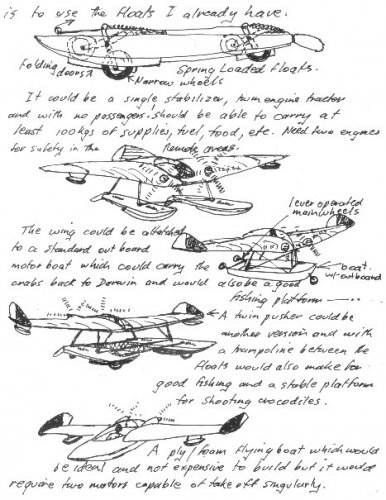 is to use the floats I already have.
Folding doors
Narrow wheels
Spring Loaded floats.
It could be a single stabilizer, twin engine tractor
and with no passengers. Should be able to carry at
least 100kgs of supplies, fuel, food, etc. Need two engines
for safety in the remote areas.
lever operated
mainwheels
The wing could be attatched
to a standard outboard
motor boat which could carry the
crabs back to Darwin and would also be a good
fishing platform
boat
w/outboard
A twin pusher could be
another version and with
a trampoline between the
floats would also make for
good fishing and a stable platform
for shooting crocodiles.
A ply/foam flying boat which would
be ideal and not expensive to build but it would
require two motors capable of take off singularly.